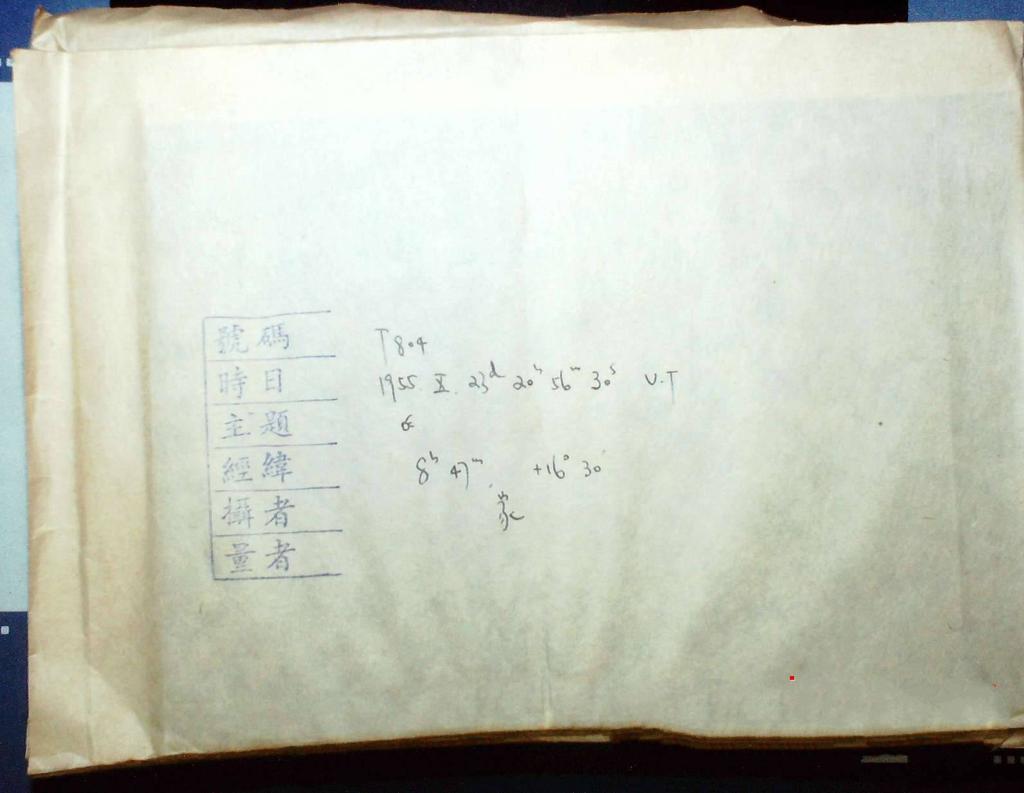 號碼 T 804
時日 1955. X. 23d 20h 56m 30s U.T
主題
經緯 8h 47m, +16° 30
攝者
量者